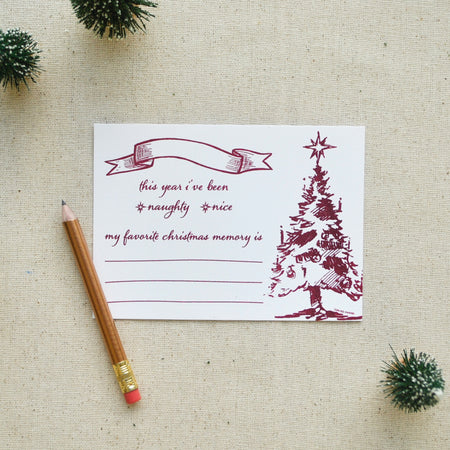 this year i've been
naughty nice
my favorite christmas memory is